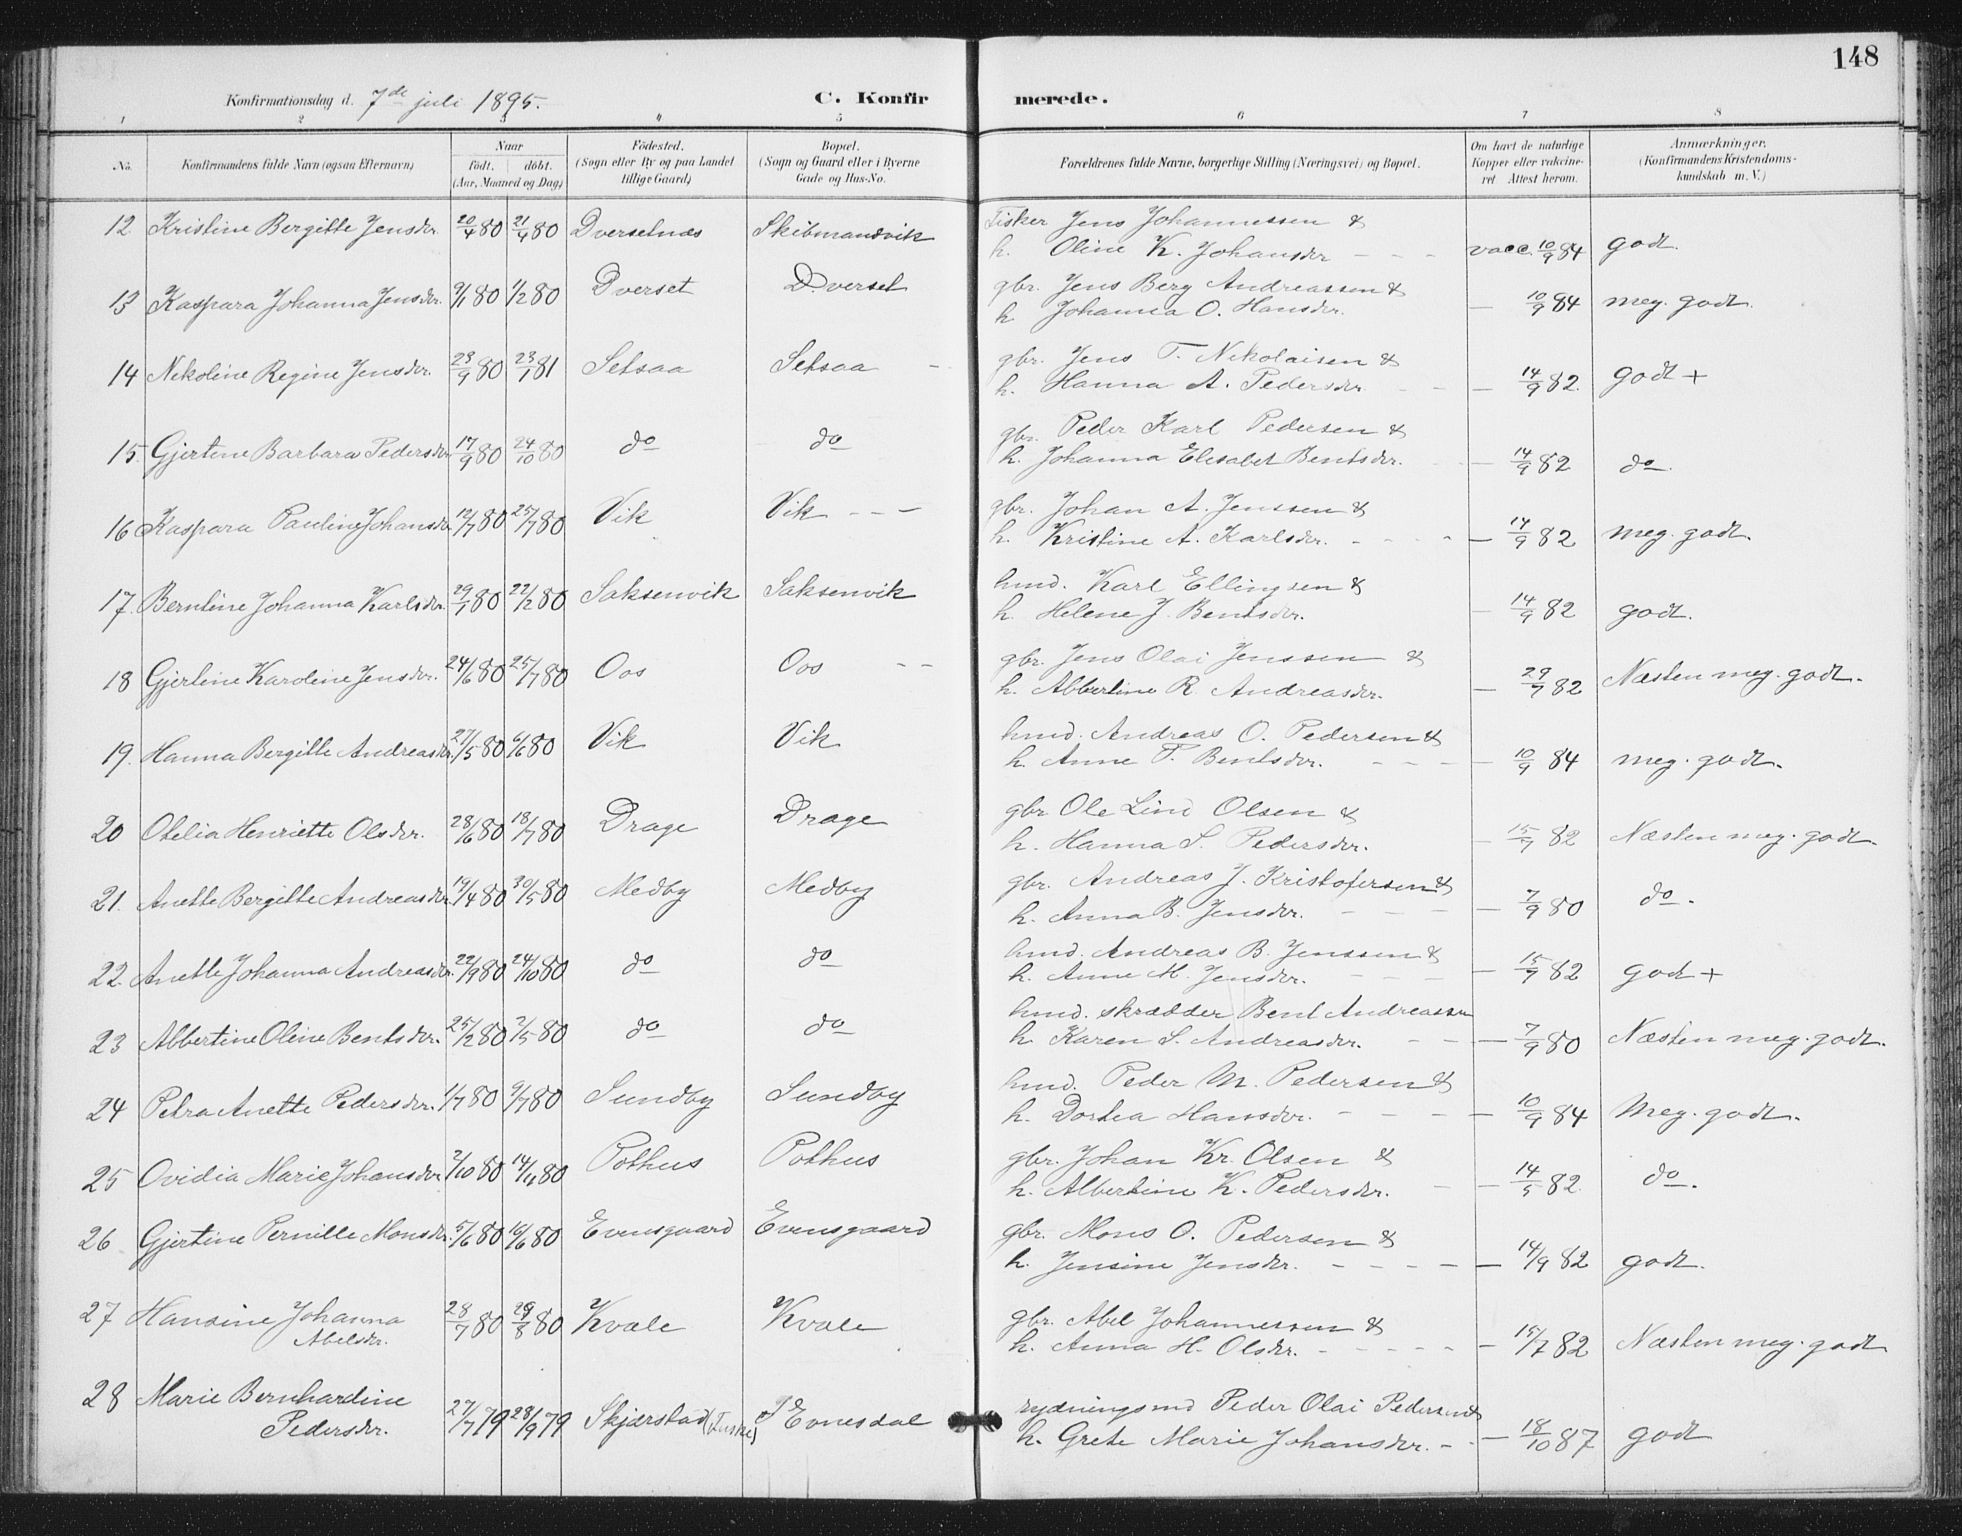 148
Konfirmationsdag d. 7de juli 1895. C. Konfir merede.
1 2 3 4 5 6 7 8
No. Konfirmandens fulde Navn (ogsaa Efternavn) Naar födt. döbt. (Aar, Maaned og Dag) Födested. (Sogn eller By og paa Landet tillige Gaard) Bopæl. (Sogn og Gaard eller i Byerne Gade og Hus-No. Forældrenes fulde Navne, borgerlige Stilling (Næringsvei) og Bopæl. Om havt de naturlige Kopper eller vakcineret Attest herom. Anmærkninger. (Konfirmandens Kristendomskundskab m. V.)
12 Kristine Bergitte Jensdr. 20/4 80 21/4 80 Dversetnæs Skibmandvik Fisker Jens Johannessen &
h. Oline K. Johansdr - - - vacc. 10/9 84 godt.
13 Kaspara Johanna Jensdr. 9/1 80 1/2 80 Dverset Dverset gbr. Jens Berg Andreassen &
h Johanna O. Hansdr. - 10/9 84 meg. godt.
14 Nikoline Regine Jensdr. 23/9 80 23/1 81 Setsaa Setsaa gbr. Jens T. Nikolaisen &
h. Hanna A. Pedersdr - - - 14/9 82. godt +
15. Gjertine Barbara Pedersdr 17/9 80 24/10 80 do do gbr. Peder Karl Pedersen &
h. Johanna Elisabet Bentsdr. - 14/9 82 do.
16 Kaspara Pauline Johansdr. 12/7 80 25/7 80 Vik Vik - - - gbr. Johan A. Jenssen &
h. Kristine A. Karlsdr. - - - - 14/9 82 meg. godt.
17. Berntine Johanna Karlsdr. 29/1 80 22/2 80 Saksenvik Saksenvik hmd. Karl Ellingsen &
h. Helene J. Bentsdr. - 14/9 82 godt.
18 Gjertine Karoline Jensdr. 24/6 80 25/7 80 Oos Oos - - gbr. Jens Olai Jenssen &
h. Albertine R. Andreasdr. - 29/7 82 Næsten meg. godt.
19. Hanna Bergitte Andreasdr. 27/5 80 6/6 80 Vik Vik hmd. Andreas O. Pedersen &
h. Anne T. Bentsdr. - - - - 10/9 84 meg. godt.
20 Otelia Henriette Olsdr. 28/6 80 18/7 80 Drage Drage gbr Ole Lind Olsen &
h. Hanna S. Pedersdr. - 15/7 82 Næsten meg. godt.
21. Anette Bergitte Andreasdr. 19/4 80 30/5 80 Medby Medby gbr. Andreas J. Kristofersen &
h. Anna B. Jensdr. - - - - 7/9 80 do.
22. Anette Johanna Andreasdr. 22/9 80 24/10 80 do do hmd. Andreas B. Jenssen &
h. Anne M. Jensdr. - - - 15/7 82 godt +
23 Albertine Oline Bentsdr. 25/2 80 2/5 80 do do hmd. skrædder Bent Andreassen
h. Karen S. Andreasdr. - - - 7/9 80 Næsten meg. godt.
24 Petra Anette Pedersdr. 1/7 80 9/7 80 Sundby Sundby hmd. Peder M. Pedersen &
h. Dortea Hansdr. - - - - 10/9 84 Meg. godt.
25 Ovidia Marie Johansdr 2/10 80 14/11 80 Pothus Pothus gbr. Johan Kr. Olsen &
h. Albertine K. Pedersdr. - - 14/5 82. do.
26 Gjertine Pernille Monsdr. 5/6 80 16/6 80 Evensgaard Evensgaard gbr. Mons O. Pedersen &
h. Jensine Jensdr. - - - - - 14/9 82 godt.
27 Hansine Johanna 28/7 80 80 Kvale Kvale gbr. Abel Johannessen &
Abelsdr. h. Anna H. Olsdr. - - - - - 15/7 82 Næsten meg. godt
28 Marie Bernhardine 27/7 79 28/9 79 Skjærstad (Fuske) Evnesdal rydningsmd Peder Olai Pedersen &
Pedersdr. h. Grete Marie Johansdr. - - - 18/10 87 godt